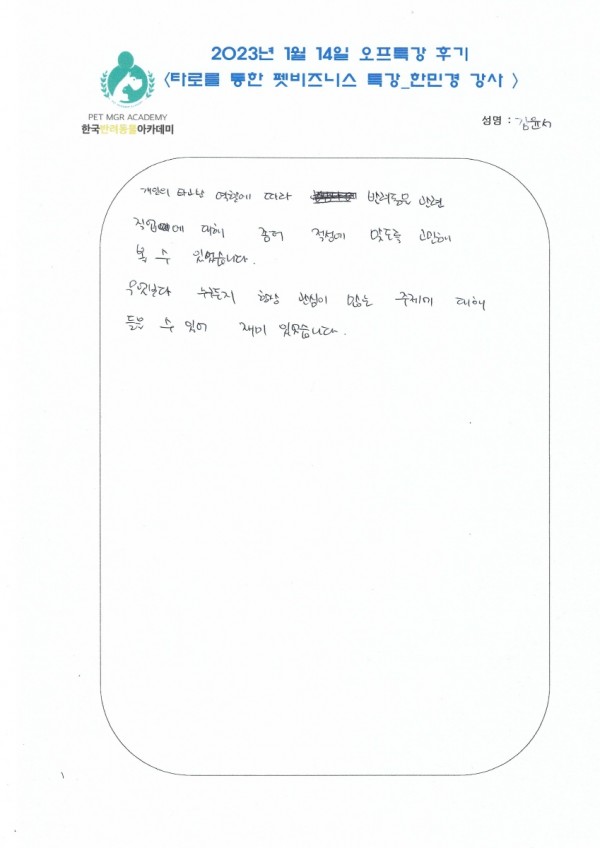 2023년 1월 14일 오프특강 후기
<타로를 통한 펫비즈니스 특강_한민경 강사 >
PET MGR ACADEMY
한국반려동물아카데미
성명 : 김윤서
개인의 타고난 역량에 따라 반려동물 관련
직업에 대해 좀더 적성에 맞도록 고민해
볼 수 있었습니다.
무엇보다 누구든지 항상 관심이 많은 주제에 대해
들을 수 있어 재미 있었습니다.